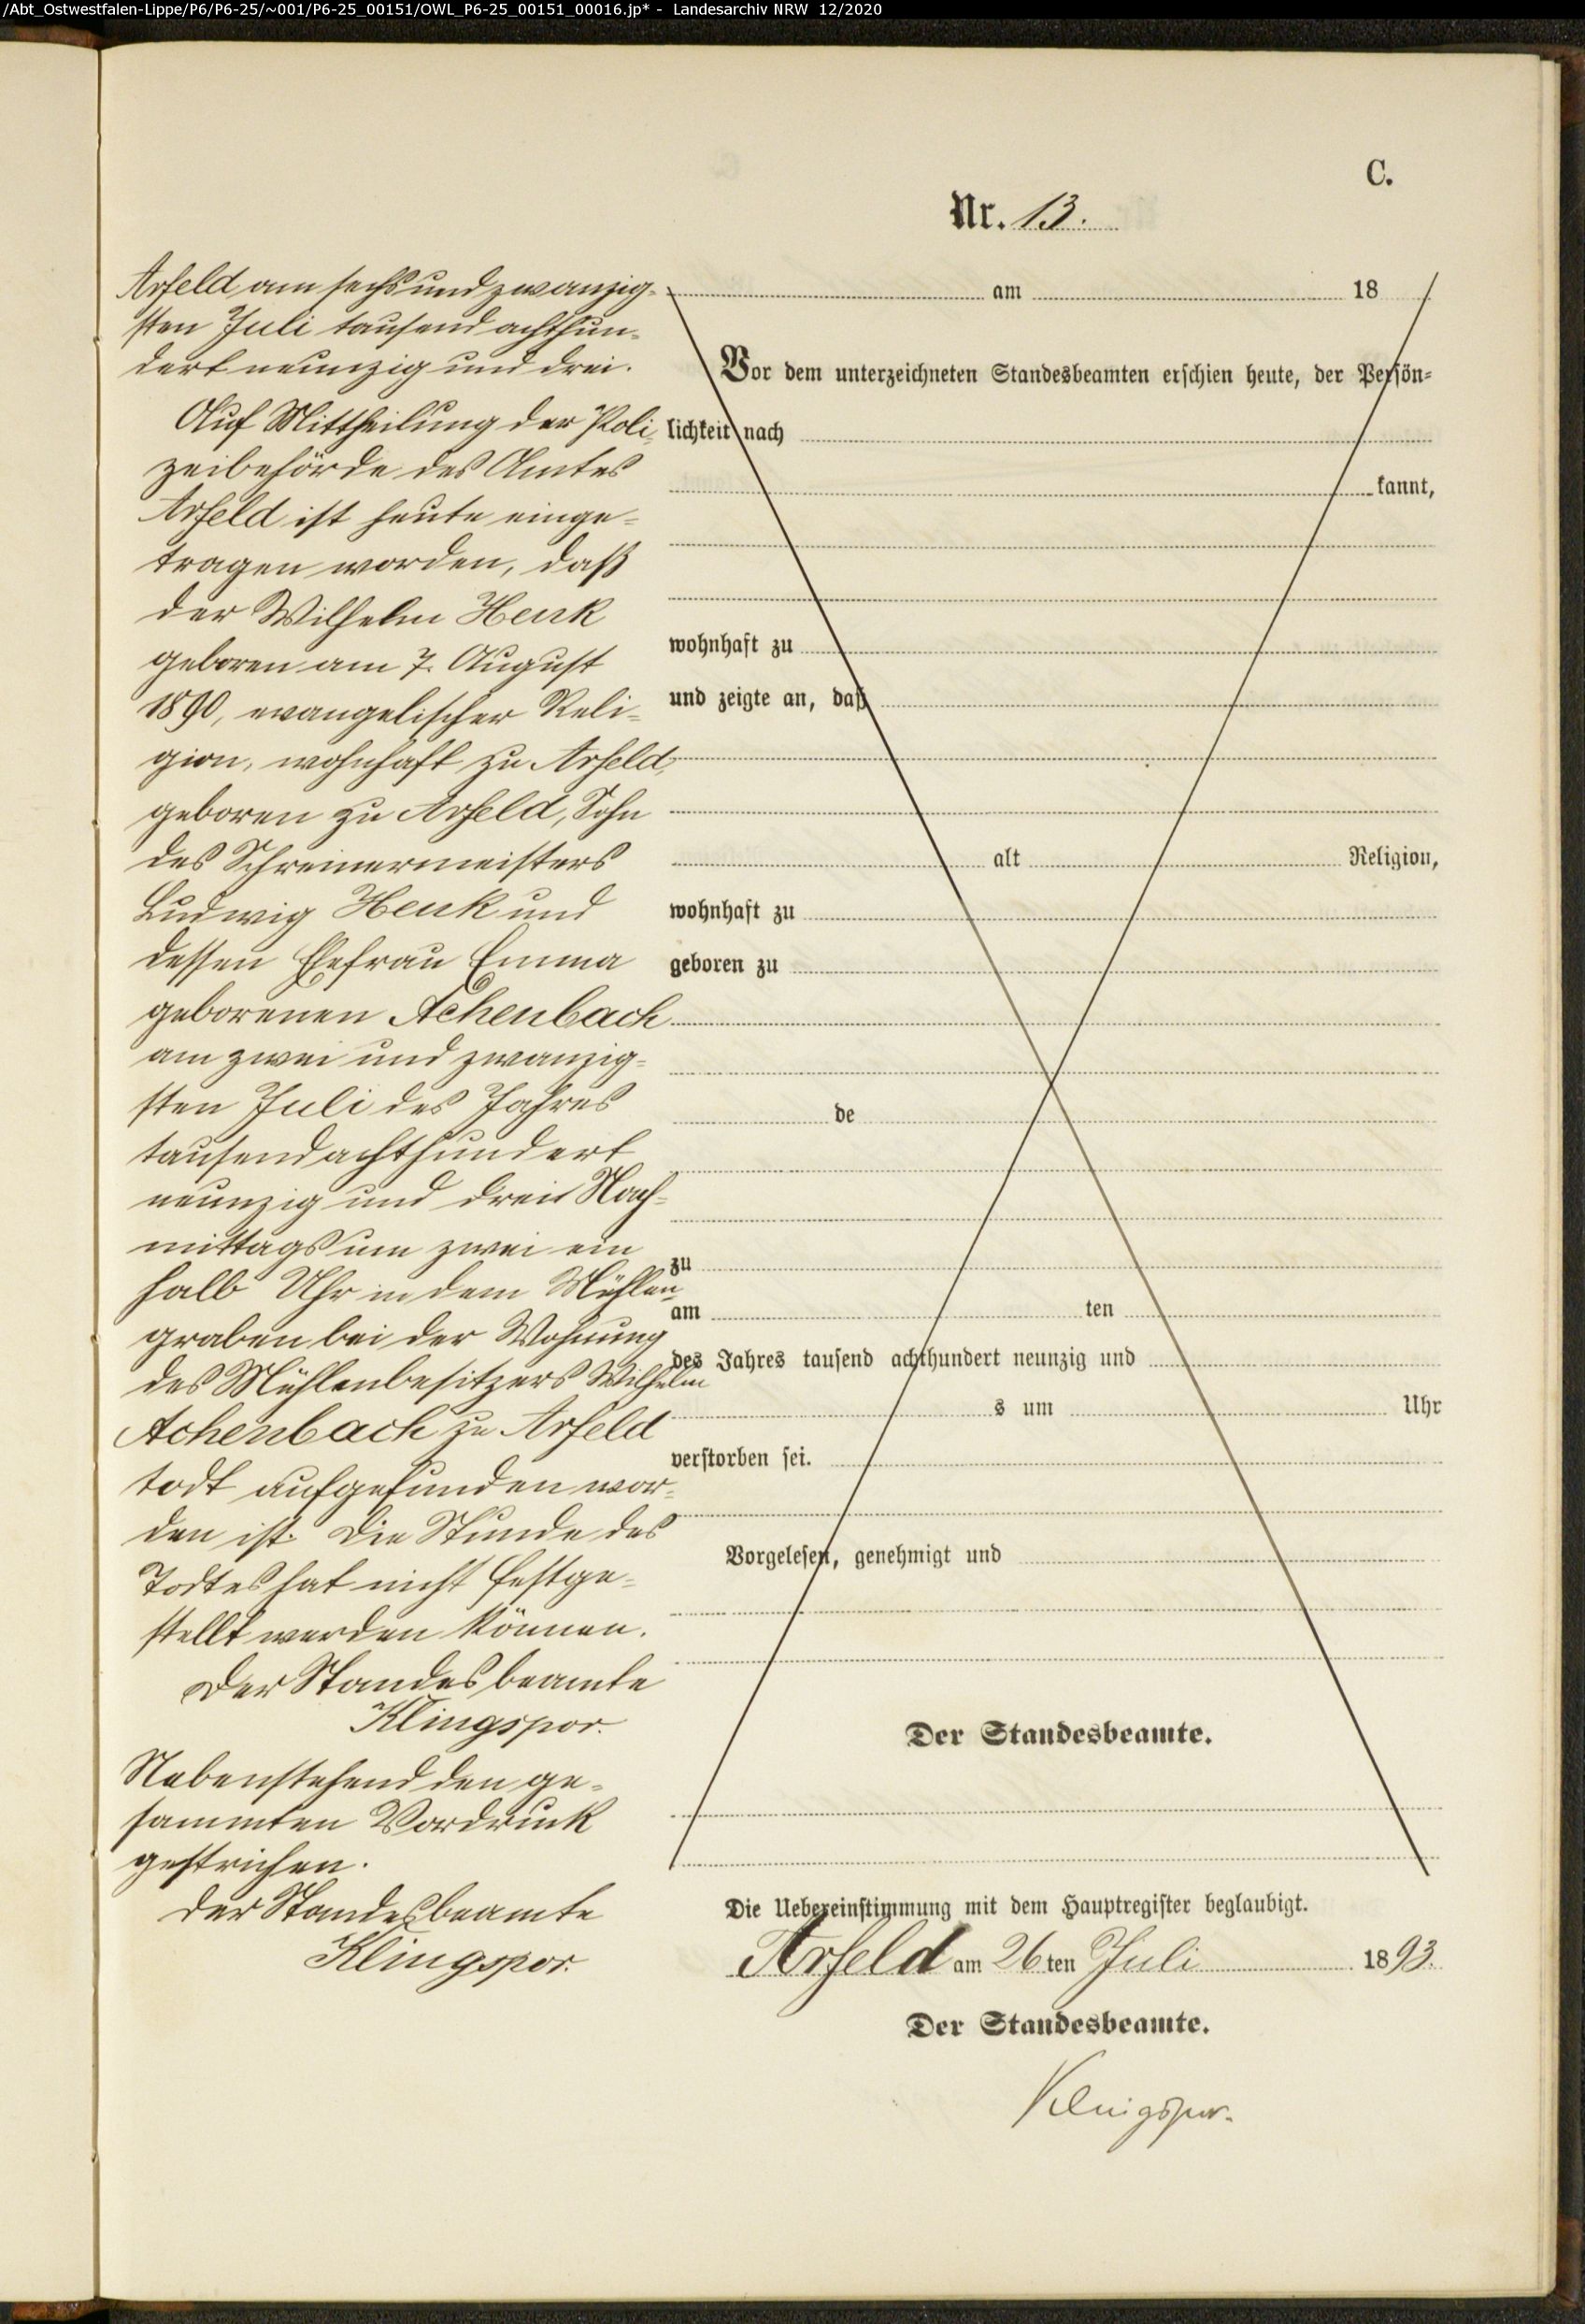 /Abt_Ostwestfalen-Lippe/P6/P6-25/~001/P6-25_00151/OWL_P6-25_00151_00016.jp* - Landesarchiv NRW 12/2020
C.
Nr. 13.
Arfeld am sechsundzwanzig-
sten Juli tausend achthun-
dert neunzig und drei.
Auf Mittheilung der Poli-
zeibehörde des Amtes
Arfeld ist heute einge-
tragen worden, daß
der Wilhelm Henk
geboren am 7. August
1890, evangelischer Reli-
gion, wohnhaft zu Arfeld,
geboren zu Arfeld, Sohn
des Schreinermeisters
Ludwig Henk und
dessen Ehefrau Emma
geborenen Achenbach
am zwei und zwanzig-
sten Juli des Jahres
tausendachthundert
neunzig und drei Nach-
mittags um zwei ein
halb Uhr in dem Mühlen-
graben bei der Wohnung
des Mühlenbesitzers Wilhelm
Achenbach zu Arfeld
todt aufgefunden wor-
den ist. Die Stunde des
Todtes hat nicht festge-
stellt werden können.
Der Standesbeamte
Klingspor.
Nebenstehend den ge-
sammten Vordruck
gestrichen.
Der Standesbeamte
Klingspor.
am 18
Vor dem unterzeichneten Standesbeamten erschien heute, der Persön-
lichkeit nach
kannt,
wohnhaft zu
und zeigte an, daß
alt Religion,
wohnhaft zu
geboren zu
de
zu
am ten
des Jahres tausend achthundert neunzig und
s um Uhr
verstorben sei.
Vorgelesen, genehmigt und
Der Standesbeamte.
Die Uebereinstimmung mit dem Hauptregister beglaubigt.
Arfeld am 26ten Juli 1893.
Der Standesbeamte.
Klingspor.